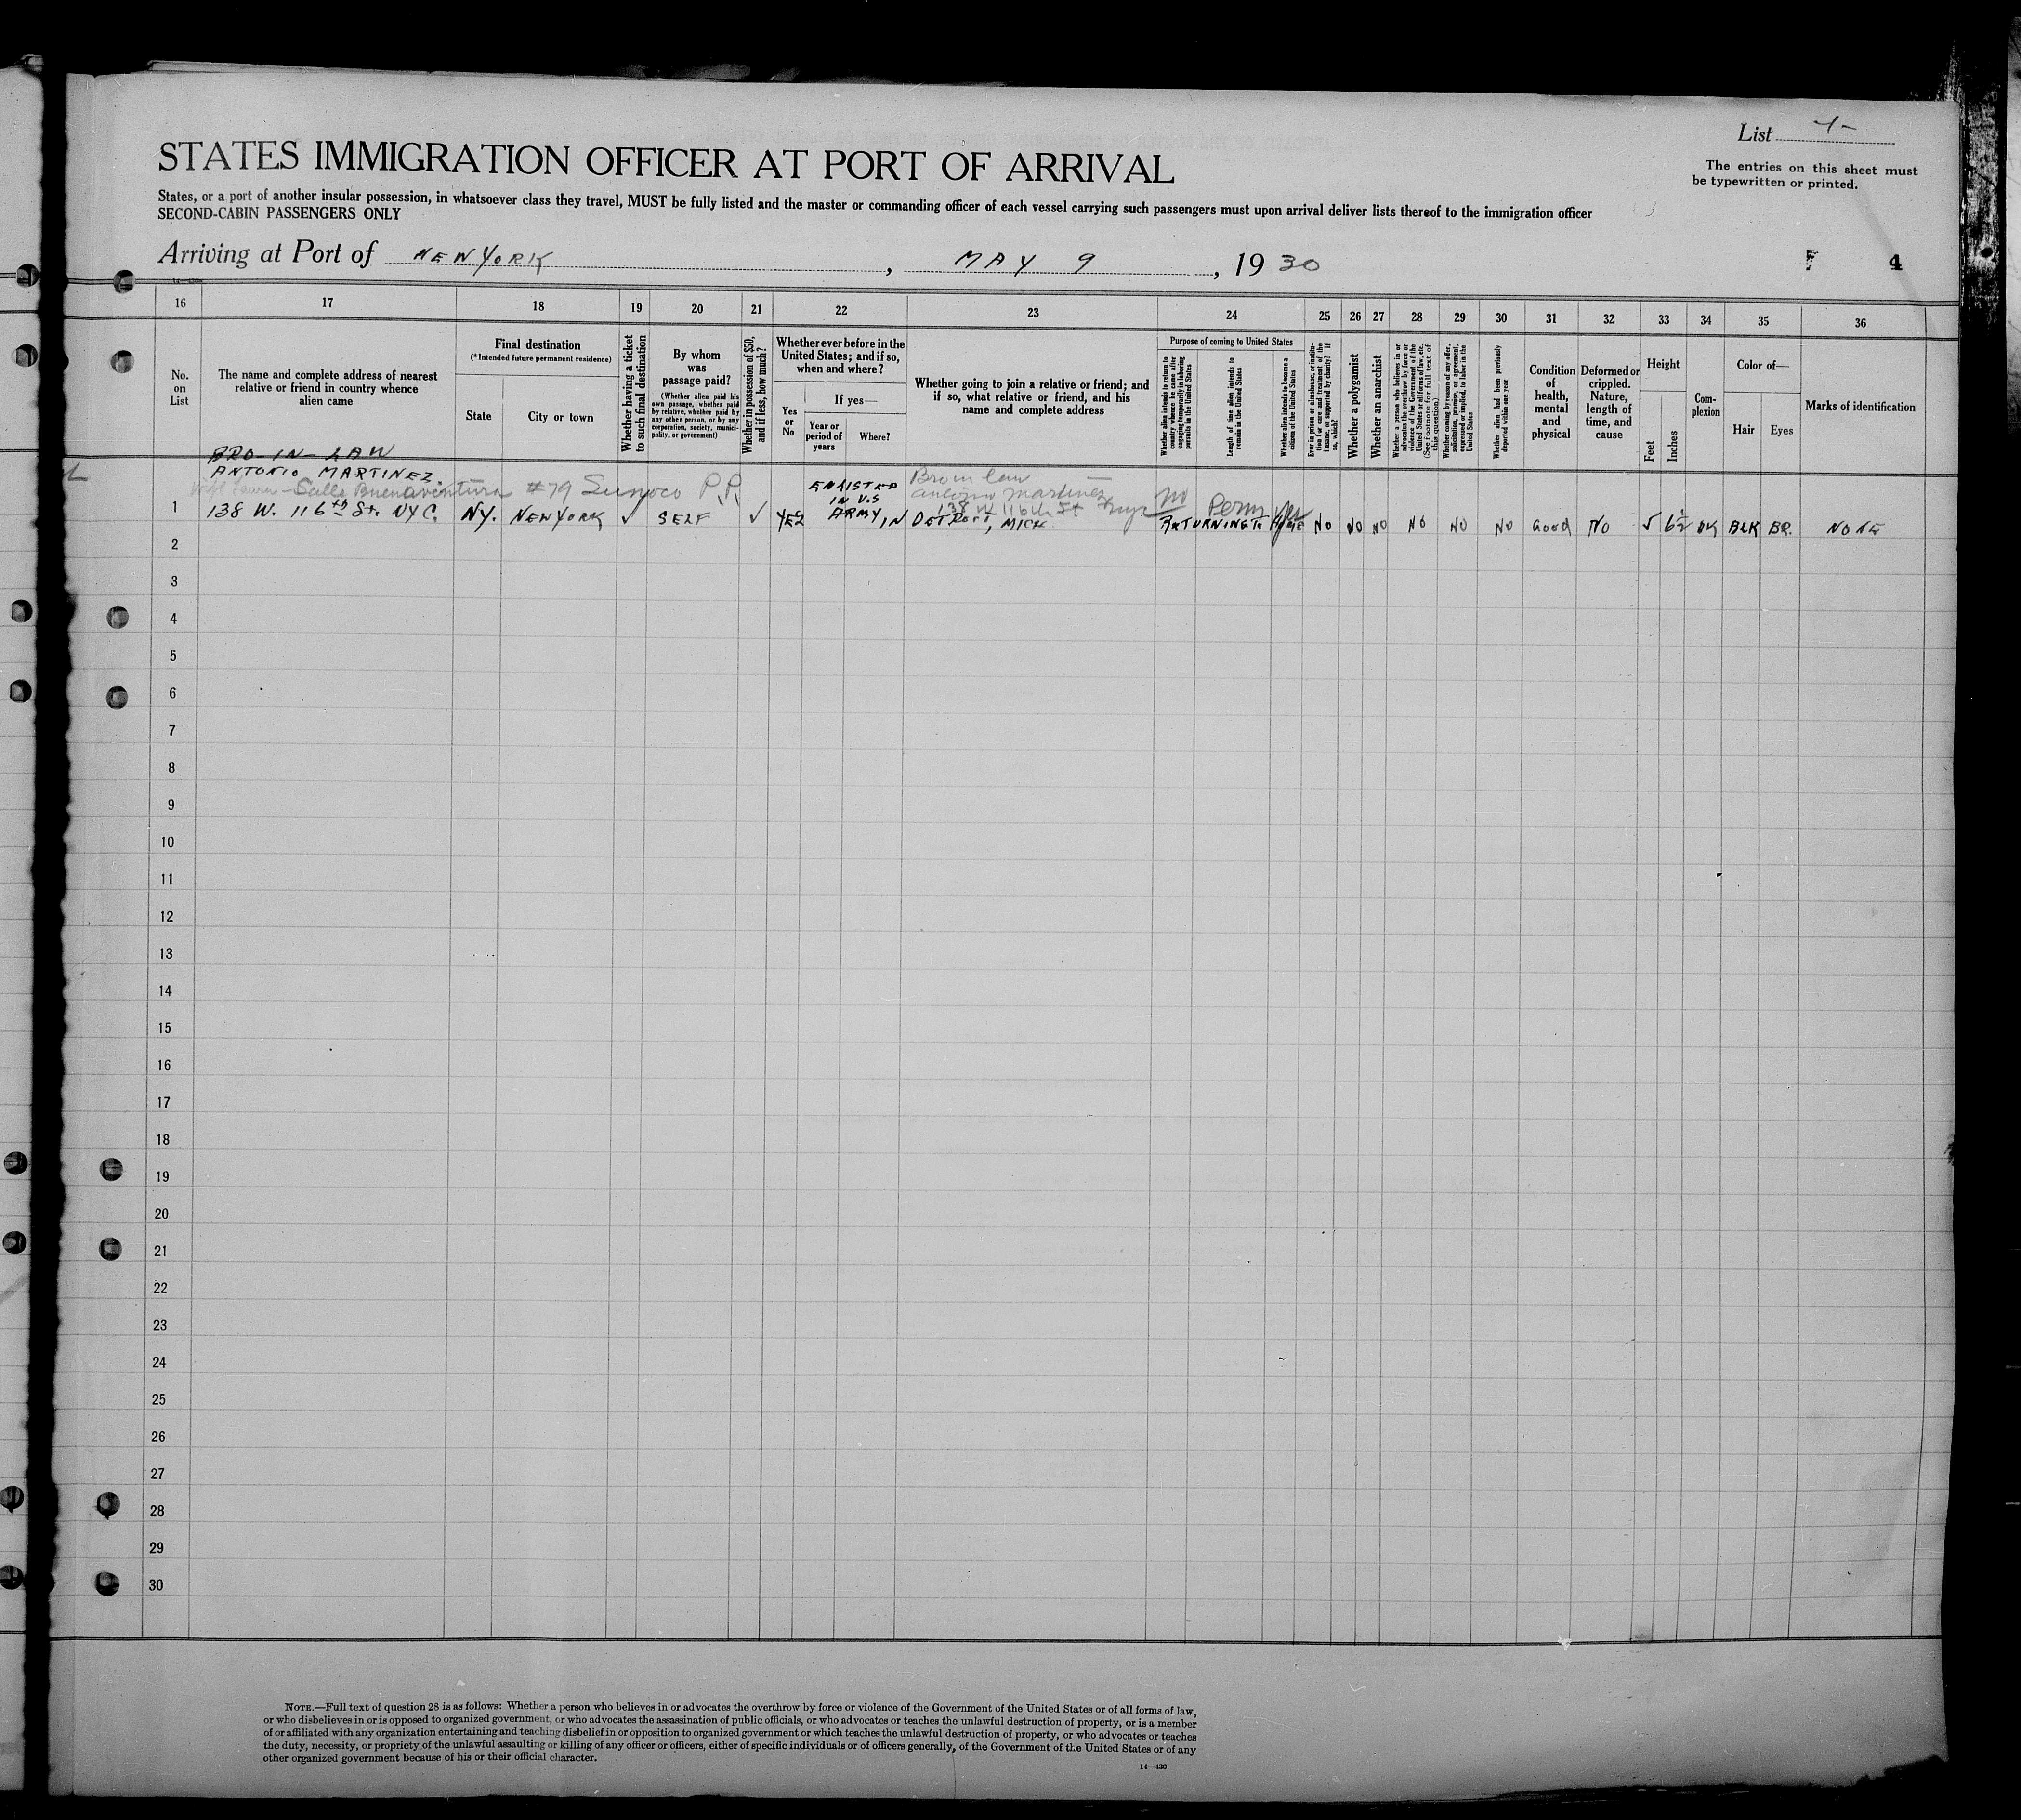 List -1-
The entries on this sheet must
be typewritten or printed.
STATES IMMIGRATION OFFICER AT PORT OF ARRIVAL
States, or a port of another insular possession, in whatsoever class they travel, MUST be fully listed and the master or commanding officer of each vessel carrying such passengers must upon arrival deliver lists thereof to the immigration officer
SECOND-CABIN PASSENGERS ONLY
Arriving at Port of NEW YORK, MAY 9, 1930
4
16 17 18 19 20 21 22 23 24 25 26 27 28 29 30 31 32 33 34 35 36
No. on List
The name and complete address of nearest relative or friend in country whence alien came
Final destination
(*Intended future permanent residence)
State
City or town
Whether having a ticket to such final destination
By whom was passage paid?
(Whether alien paid his own passage, whether paid by relative, whether paid by any other person, or by any corporation, society, municipality, or government)
Whether in possession of $50, and if less, how much?
Whether ever before in the United States; and if so, when and where?
Yes or No
If yes—
Year or period of years
Where?
Whether going to join a relative or friend; and if so, what relative or friend, and his name and complete address
Purpose of coming to United States
Whether alien intends to return to country whence he came after engaging temporarily in laboring pursuits in the United States
Length of time alien intends to remain in the United States
Whether alien intends to become a citizen of the United States
Ever in prison or almshouse, or institution for care and treatment of the insane, or supported by charity? If so, which?
Whether a polygamist
Whether an anarchist
Whether a person who believes in or advocates the overthrow by force or violence of the Government of the United States or all forms of law, etc. (See footnote for full text of this question)
Whether coming by reason of any offer, solicitation, promise, or agreement, expressed or implied, to labor in the United States
Whether alien had been previously deported within one year
Condition of health, mental and physical
Deformed or crippled. Nature, length of time, and cause
Height
Feet
Inches
Complexion
Color of—
Hair
Eyes
Marks of identification
BRO-IN-LAW
ANTONIO MARTINEZ.
Calle Buenaventura #79 P.R.
1 138 W. 116th St. NYC. NY. NEW YORK ✓ SELF ✓ YES
ENLISTED
IN U.S
ARMY, IN DETROIT, MICH.
Bro in law
Antonio Martinez
138 W 116th St NYC
no Perm
RETURNING TO HOME NO NO NO NO NO NO Good NO 5 6½ DK BLK BR. NONE
2
3
4
5
6
7
8
9
10
11
12
13
14
15
16
17
18
19
20
21
22
23
24
25
26
27
28
29
30
NOTE.—Full text of question 28 is as follows: Whether a person who believes in or advocates the overthrow by force or violence of the Government of the United States or of all forms of law,
or who disbelieves in or is opposed to organized government, or who advocates the assassination of public officials, or who advocates or teaches the unlawful destruction of property, or is a member
of or affiliated with any organization entertaining and teaching disbelief in or opposition to organized government or which teaches the unlawful destruction of property, or who advocates or teaches
the duty, necessity, or propriety of the unlawful assaulting or killing of any officer or officers, either of specific individuals or of officers generally, of the Government of the United States or of any
other organized government because of his or their official character.
14—430